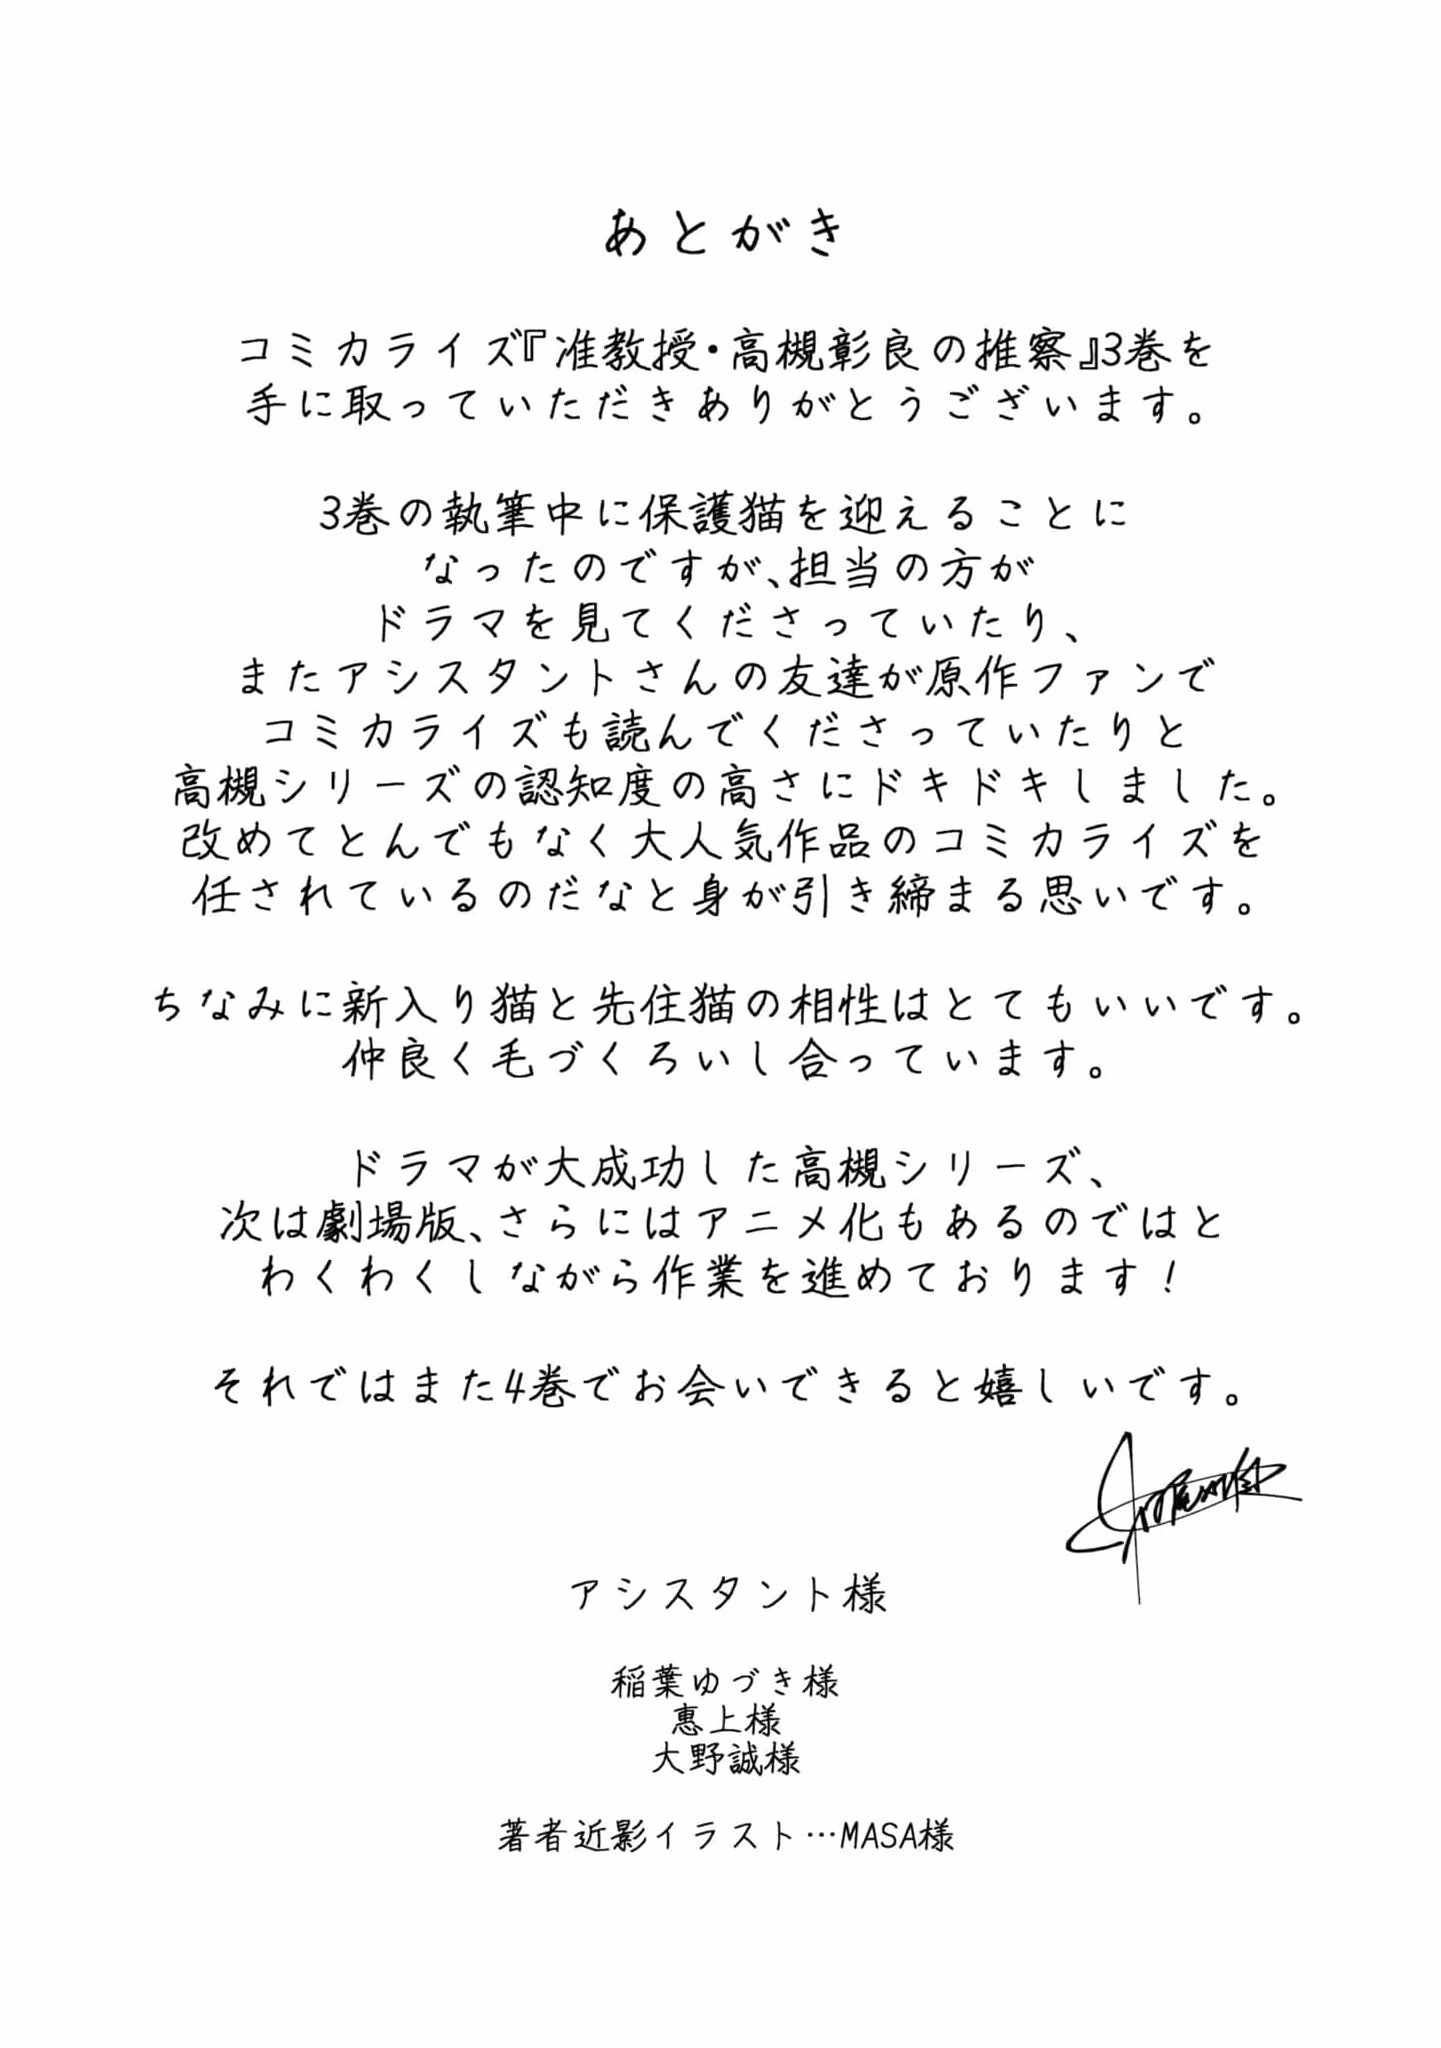 あとがき
コミカライズ『准教授・高槻彰良の推察』3巻を
手に取っていただきありがとうございます。
3巻の執筆中に保護猫を迎えることに
なったのですが、担当の方が
ドラマを見てくださっていたり、
またアシスタントさんの友達が原作ファンで
コミカライズも読んでくださっていたりと
高槻シリーズの認知度の高さにドキドキしました。
改めてとんでもなく大人気作品のコミカライズを
任されているのだなと身が引き締まる思いです。
ちなみに新入り猫と先住猫の相性はとてもいいです。
仲良く毛づくろいし合っています。
ドラマが大成功した高槻シリーズ、
次は劇場版、さらにはアニメ化もあるのではと
わくわくしながら作業を進めております！
それではまた4巻でお会いできると嬉しいです。
アシスタント様
稲葉ゆづき様
惠上様
大野誠様
著者近影イラスト…MASA様